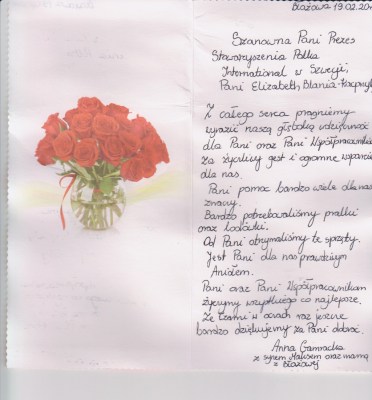 Błażowa 19.02.20
Szanowna Pani Prezes
Stowarzyszenia Polka
International w Szwecji,
Pani Elizabeth, Blania-
Z całego serca pragniemy
wyrazić naszą głęboką wdzięczność
dla Pani oraz Pani Współpracowników
za życzliwy gest i ogromne wsparcie
dla nas.
Pani pomoc bardzo wiele dla nas
znaczy.
Bardzo potrzebowaliśmy pralki
oraz lodówki.
Od Pani otrzymaliśmy te sprzęty.
Jest Pani dla nas prawdziwym
Aniołem.
Pani oraz Pani Współpracownikom
życzymy wszystkiego co najlepsze.
Ze łzami w oczach raz jeszcze
bardzo dziękujemy za Pani dobroć.
Anna
z synem oraz mamą
z Błażowej